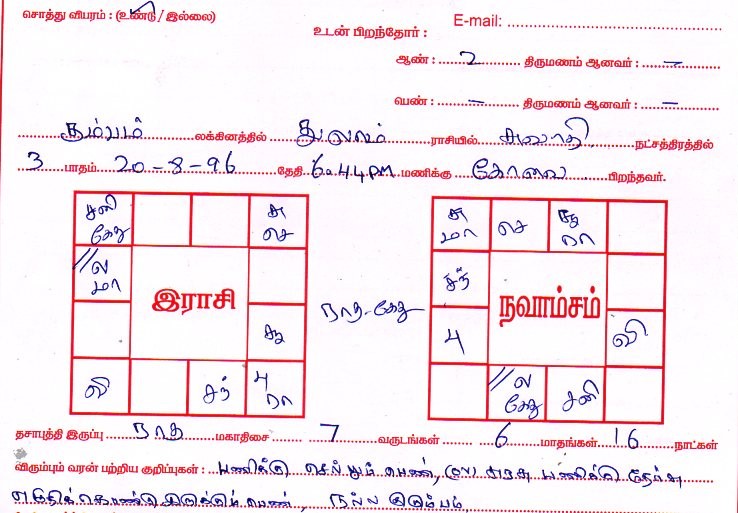 சொத்து விபரம் : (உண்டு / இல்லை)
E-mail:
உடன் பிறந்தோர் :
ஆண் : 2 திருமணம் ஆனவர் : –
பெண் : – திருமணம் ஆனவர் : –
கும்பம் லக்கினத்தில் துலாம் ராசியில் சுவாதி நட்சத்திரத்தில்
3 பாதம் 20-8-96 தேதி 6.44 PM மணிக்கு கோவை பிறந்தவர்.
சனி கேது
சு செ
ல மா
இராசி
சூ
வி
சந்
பு ரா
ராகு-கேது
சு மா
செ
சூ ரா
சந்
நவாம்சம்
பு
வி
ல கேது
சனி
தசாபுத்தி இருப்பு ராகு மகாதிசை 7 வருடங்கள் 6 மாதங்கள் 16 நாட்கள்
விரும்பும் வரன் பற்றிய குறிப்புகள் : பணிக்கு செல்லும் பெண், பணிக்கு தேர்வு
எழுதிக்கொண்டு இருக்கும் பெண், நல்ல குடும்பம்